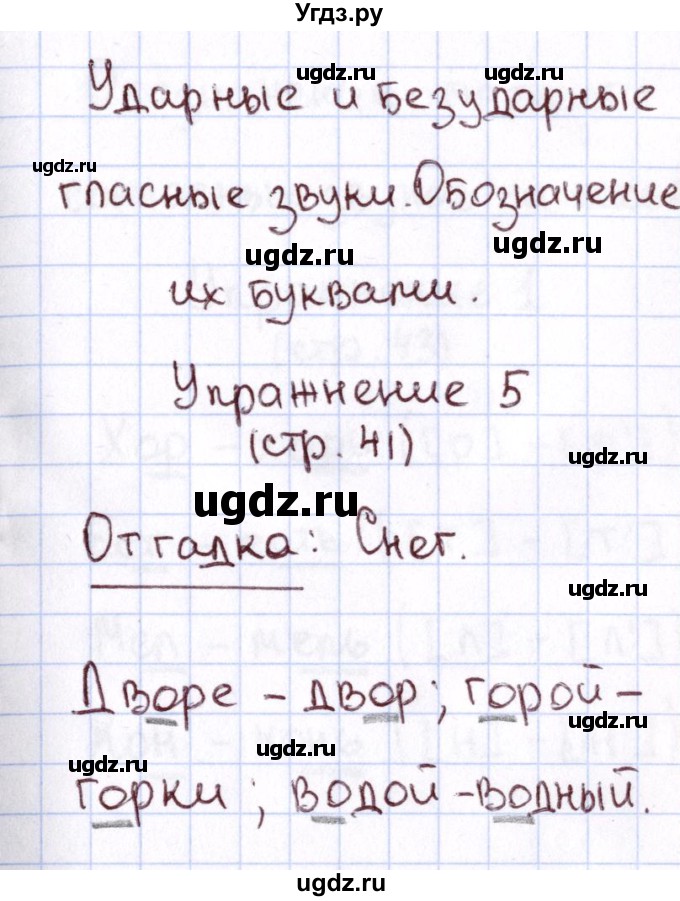 Угдз.ру
Ударные и безударные
гласные звуки. Обозначение
их буквами.
Упражнение 5
(стр. 41)
Отгадка: Снег.
Дворе – двор; горой –
горки; водой – водный.
ugdz.ru
ugdz.ru
ugdz.ru
ugdz.ru
ugdz.ru
ugdz.ru
ugdz.ru
ugdz.ru
ugdz.ru
ugdz.ru
ugdz.ru
ugdz.ru